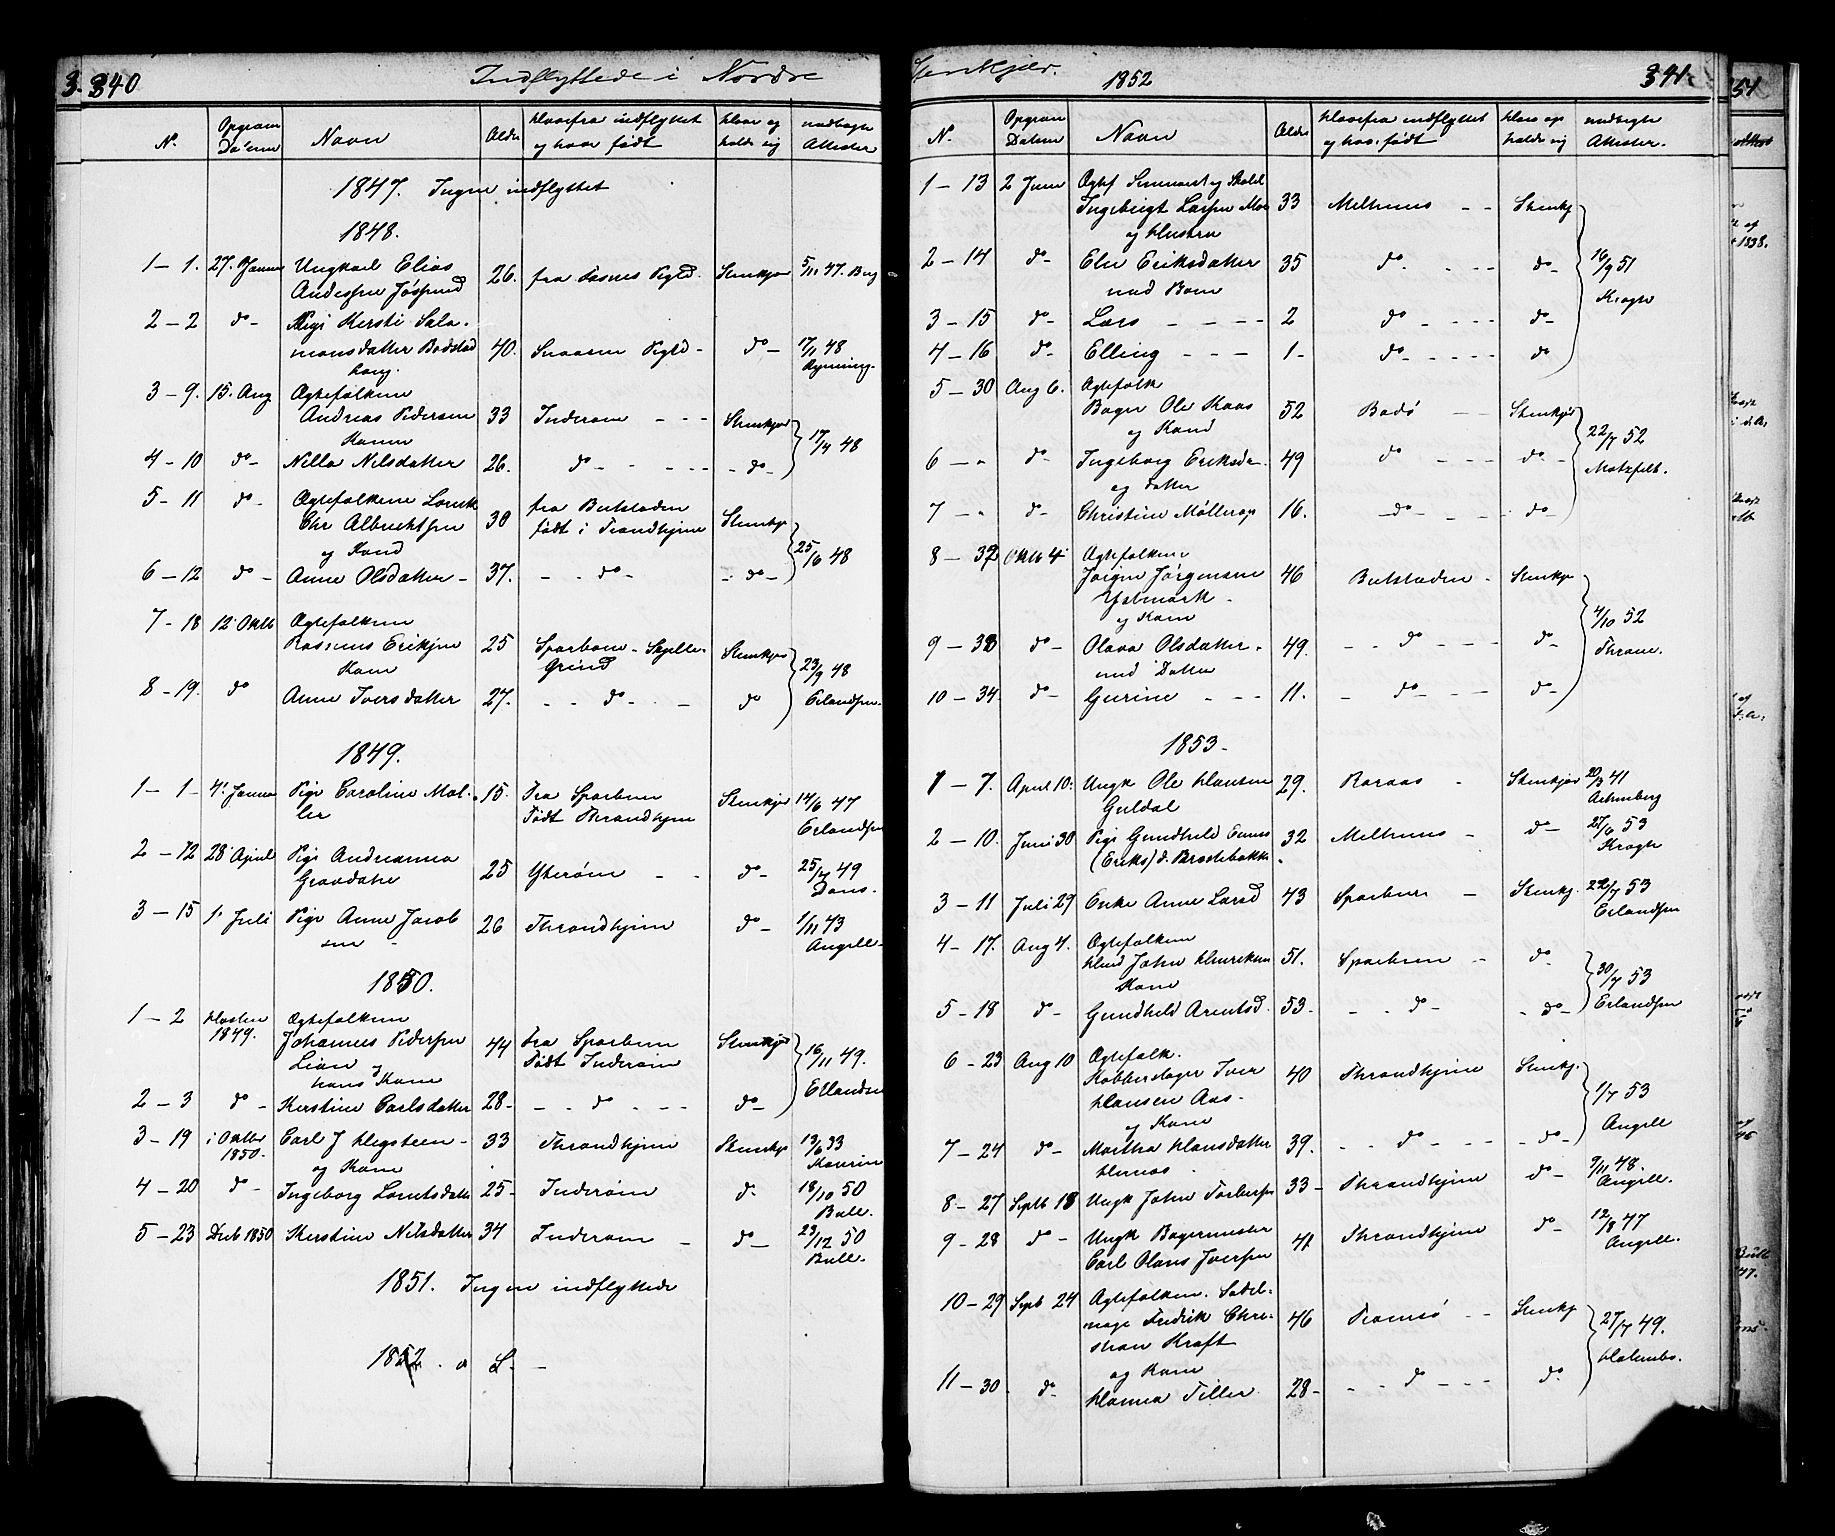 340 Indflyttede i Nordre
N. Navn Alder hvorfra indflyttet og hvor født hvor og holde sig medbragte Attester
1847. Ingen indflyttet
1848.
1 – 1. 27. Januar Ungkarl Elias 26. fra Fosnes Pgld. Stenkjær 5/11 47. Berg
Anderssen
2 – 2 do – Pige Kersti Salo-
monsdatter 40. Snaasen Pgld – do – 17/1 48
Rynning.
3 – 9. 15. Aug Ægtefolkene
Andreas Pedersen 33 Inderøen – – – Stenkjær
Kone 17/4 48
4 – 10 do – Nilla Nilsdatter 26. do – – – – do –
5 – 11 do – Ægtefolkene Lorentz fra Beitstaden
Chr Albrechtsen 30 født i Trondhjem Stenkjr
og Kone 25/6 48
6 – 12 do – Anne Olsdatter – 37. – – do – – do –
7 – 18 12. Oktb Ægtefolkene
Rasmus Eriksen 25 Sparboen – Skjelle- Stenkjær
Kone Grind 23/9 48
8 – 19. do Anne Iversdatter 27. – – do – – do Erlandsen.
1849.
1 – 1 – 4. Januar Pige Caroline Møl- 15. Fra Sparbuen Stenkjær 14/6 47
ler Født Throndhjem Erlandsen
2 – 12 28. April Pige Andrianna 25 Ytterøen – – do – 25/4 49
3 – 15 1. Juli Pige Anne Jacob 26 Throndhjem do – 1/11 43
sen – Angell –
1850.
1 – 2 Høsten Ægtefolkene
1849. Johannes Pedersen 44 Fra Sparbuen Stenkjær 16/11 49.
Lian og Født Inderøen
hans Kone Erlandsen
2 – 3 do – Kerstine Carlsdatter 28 – – – do – – – do –
3 – 19 i Oktbr Carl J Hegsteen – 33 Throndhjem Stenkjr 13/6 33
1850. og Kone
4 – 20 do – Ingeborg Lorntsdatter 25 – Inderøen do. 18/10 50
Bull.
5 – 23 Decb 1850 Kerstine Nilsdatter 34 Inderøen – do – 23/12 50
Bull.
1851. Ingen indflyttede
1852.
Stenkjær. 1852 341
N. Datum Navn Alder hvorfra indflyttet og hvor født hvor og holde sig medbragte Attester.
1 – 13 2 Juni
Ingebrigt Larsen Moe 33 Melhuus – – Stenkj
og Hustru
2 – 14 do – Elen Eriksdatter 35 do – – – – do – 16/9 51
med Børn Krogh
3 – 15 do – Lars – – – – 2 do – – – – do –
4 – 16 do – Elling – – – 1 – do – – – – do
5 – 30 Aug 6. Ægtefolk
Bager Ole Kaas 52 Bodø – – Stenkjær
og Kone 22/7 52
6 – „ do – Ingeborg Eriksd. 49 do – – – do – – Motzfelt.
og datter
7 – „ do – Christine Møllerop 16. – do – – – – do –
8 – 32 Oktb 4. Ægtefolkene
Jørgen Jørgensen 46 Beitstaden – Stenkjr
og Kone 4/10 52
9 – 33 do – Olava Olsdatter – 49. – – do – – – do – Thrane.
med Datter
10 – 34 do – Gurine – – – 11. – do – – – do –
1853 –
1 – 7. April 10. Ungk Ole Hansen 29. Røraas – Stenkjær 20/3 41
Guldal
2 – 10. Juni 30 Pige Gundhild Eunes 32 Melhuus – do – 27/6 53
(Eriks) d. Krogh
3 – 11 Juli 29 Enke Anne Larsd 43 Sparbuen – Stenkj. 22/7 53
Erlandsen
4 – 17. Aug 4. Ægtefolkene
John Henriksen 51. Sparbuen – do –
Kone 30/7 53
5 – 18 do – Gundhild Arentsd. 53 – – – do – – do – Erlandsen
6 – 23 Aug 10 Ægtefolk.
Kobberslager Iver 40 Throndhjem Stenkj.
Hansen Aas – 1/7 53
og Kone Angell
7 – 24 do – Martha Hansdatter 39. – – do – – – – do –
8 – 27 Septb 18 Ungk John Torbersen 33 – Throndhjem do – 9/11 48.
Angell.
9 – 28 do – Ungk Bagermester 41 Throndhjem do – 12/8 47
Carl Olaus Iversen Angell.
10 – 29 Septb 24 Ægtefolkene. Sadel-
mager Fredrik Chri- 46 Tromsø – – Stenkjr
stian Kraft 27/7 49.
og Kone Holmboe.
11 – 30 do – Hanna Tiller 28 – – – do – – – do